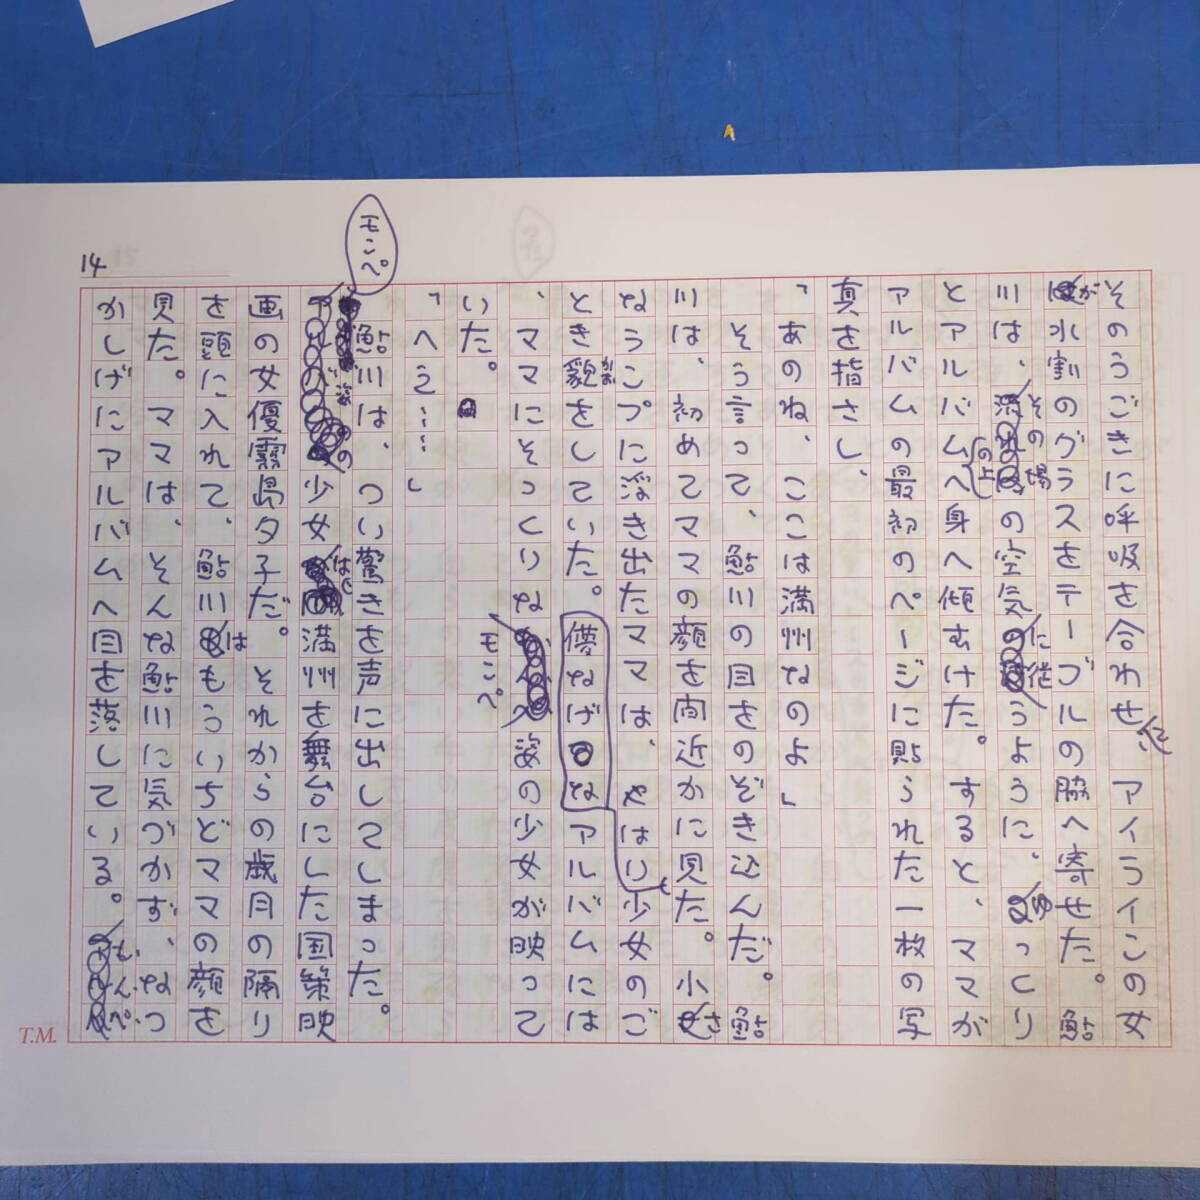 14
そのうごきに呼吸を合わせ、アイラインの女
が水割のグラスをテーブルの脇へ寄せた。鮎
川は、その場の空気に従うように、ゆっくり
とアルバムの上へ身へ傾むけた。すると、ママが
アルバムの最初のページに貼られた一枚の写
真を指さし、
「あのね、ここは満州なのよ」
そう言って、鮎川の目をのぞき込んだ。鮎
川は、初めてママの顔を間近かに見た。小さ
なうこプに浮き出たママは、やはり少女のご
とき貌をしていた。儚なげなアルバムには
かお
、ママにそっくりなモンペ姿の少女が映って
いた。
「へえ……」
鮎川は、つい驚きを声に出してしまった。
モンペ
姿の少女は、満州を舞台にした国策映
画の女優霧島夕子だ。それからの歳月の隔り
を頭に入れて、鮎川はもういちどママの顔を
見た。ママは、そんな鮎川に気づかず、なつ
かしげにアルバムへ目を落している。もんぺ
T.M.